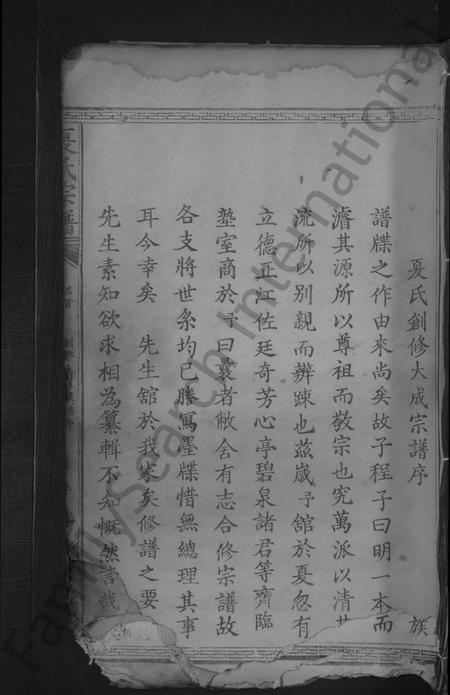 夏氏創修大成宗譜序
譜牒之作由來尚矣故子程子曰明一本而
濬其源所以尊祖而敬宗也究萬派以清其
流所以別親而辨疎也茲歲予舘於夏忽有族
立德正江佐廷奇芳心亭碧泉諸君等齊臨
塾室商於予曰曩者敝舍有志合修宗譜故
各支將世系均已謄寫墨牒惜無總理其事
耳今幸矣 先生舘於我家矣修譜之要
先生素知欲求相為纂輯不 慨然言哉
夏氏宗譜
FamilySearch International